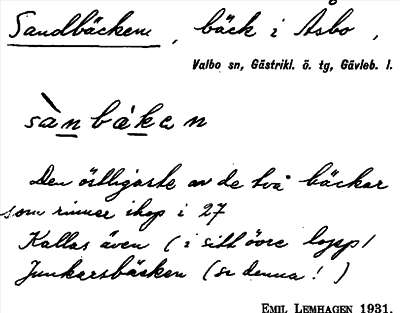 Sandbäcken, bäck i Åsbo,
Valbo sn, Gästrikl. ö. tg, Gävleb. l.
sànbákan
Den östligaste av de två bäckar
som rinner ihop i 27
Kallas även (i sitt övre lopp)
Junkarsbäcken (se denna!)
EMIL LEMHAGEN 1931.